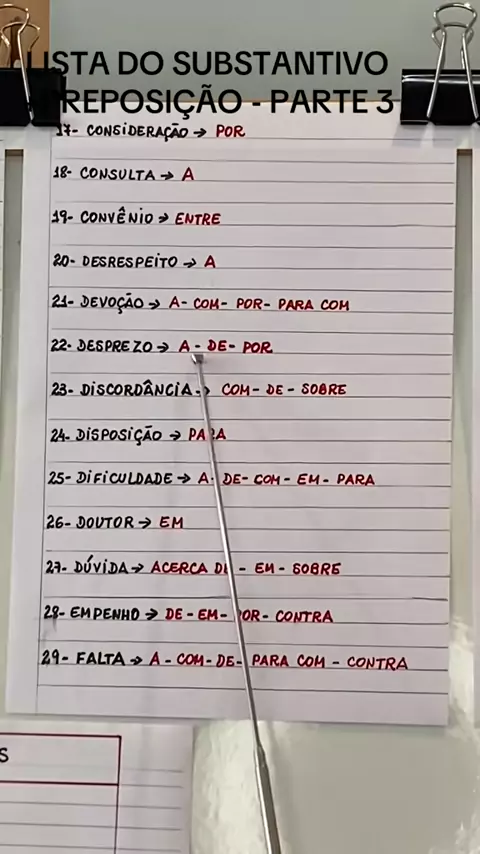 LISTA DO SUBSTANTIVO
PREPOSIÇÃO - PARTE 3
17- CONSIDERAÇÃO → POR
18- CONSULTA → A
19- CONVÊNIO → ENTRE
20- DESRESPEITO → A
21- DEVOÇÃO → A- COM- POR- PARA COM
22- DESPREZO → A - DE- POR
23- DISCORDÂNCIA → COM- DE - SOBRE
24- DISPOSIÇÃO → PARA
25- DIFICULDADE → A- DE- COM- EM- PARA
26- DOUTOR → EM
27- DÚVIDA → ACERCA DE - EM- SOBRE
28- EMPENHO → DE - EM- POR- CONTRA
29- FALTA → A - COM- DE- PARA COM - CONTRA
S